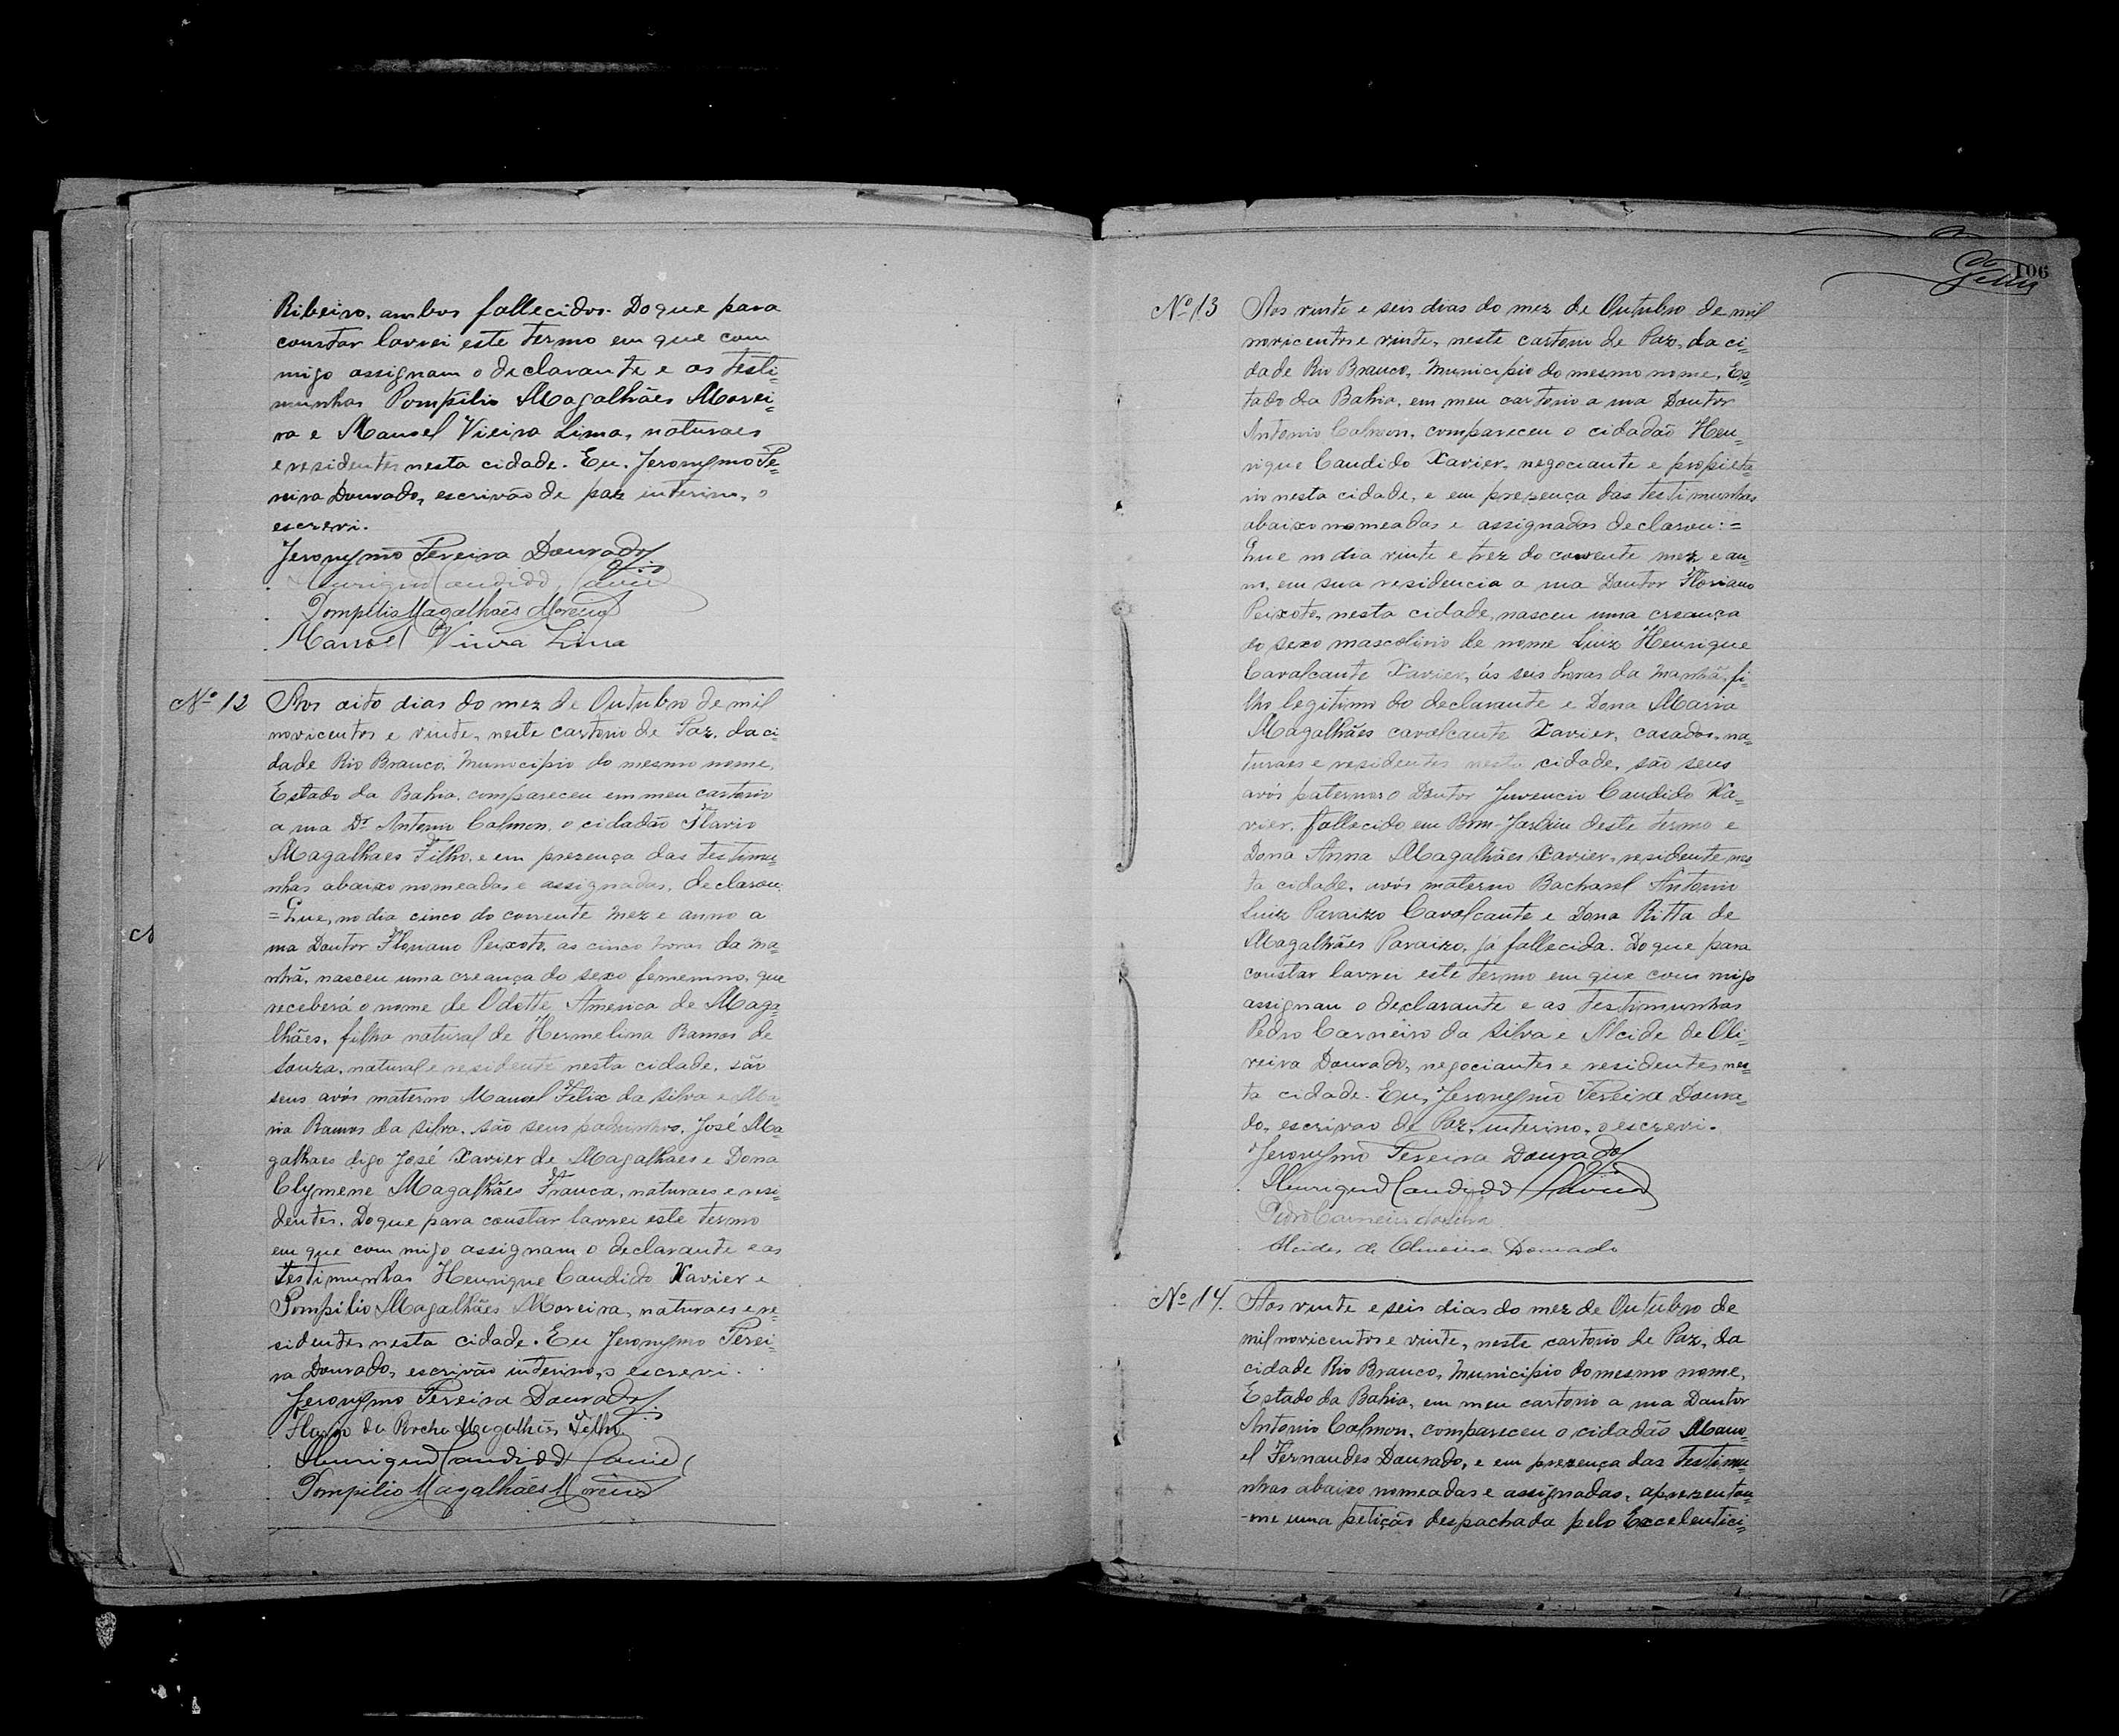 Ribeiro, ambos fallecidos. Do que para
constar lavrei este termo em que com
migo assignam o declarante e as testi=
munhas Pompilio Magalhães Morei=
ra e Manoel Vieira Lima, naturaes
e residentes nesta cidade. Eu, Jeronymo Pe=
reira Dourado, escrivão de paz interino, o
escrevi.
Jeronymo Pereira Dourado
Henrique Candido Xavier
Pompilio Magalhães Moreira
Manoel Vieira Lima
Nº 12 Aos oito dias do mez de Outubro de mil
novicentos e vinte, neste cartorio de Paz, da ci=
dade Rio Branco, Municipio do mesmo nome,
Estado da Bahia, compareceu em meu cartorio
a rua Dr Antonio Calmon, o cidadão Flavio
Magalhaes Filho, e em prezença das testimu=
nhas abaixo nomeadas e assignadas, declarou:
= Que, no dia cinco do corrente mez e anno a
rua Doutor Floriano Peixoto, as cinco horas da ma=
nhã, nasceu uma creança do sexo femenino, que
receberá o nome de Odette America de Maga=
lhães, filha natural de Hermelina Ramos de
Souza, natural e residente nesta cidade, são
seus avós materno Manoel Felix da Silva e Ma=
ria Ramos da Silva, são seus padrinhos, José Ma=
galhaes digo José Xavier de Magalhaes e Dona
Clymene Magalhães Franca, naturaes e resi=
dentes. Do que para constar lavrei este termo
em que com migo assignam o declarante e as
testimunhas Henrique Candido Xavier e
Pompilio Magalhães Moreira, naturaes e re=
sidentes nesta cidade. Eu Jeronymo Perei=
ra Dourado, escrivão interino, o escrevi.
Jeronymo Pereira Dourado
Flavio da Rocha Magalhães Filho
Henrique Candido Xavier
Pompilio Magalhães Moreira
106
Nº 13 Aos vinte e seis dias do mez de Outubro de mil
novicentos e vinte, neste cartorio de Paz, da ci=
dade Rio Branco, Municipio do mesmo nome, Es=
tado da Bahia, em meu cartorio a rua Doutor
Antonio Calmon, compareceu o cidadão Hen=
rique Candido Xavier, negociante e propieta
rio nesta cidade, e em prezença das testimunhas
abaixo nomeadas e assignadas declarou: =
Que no dia vinte e trez do corrente mez e an=
no, em sua residencia a rua Doutor Floriano
Peixoto, nesta cidade, nasceu uma creança
do sexo mascolino de nome Luiz Henrique
Cavalcante Xavier, ás seis horas da manhã, fi=
lho legitimo do declarante e Dona Maria
Magalhães cavalcante Xavier, casados, na=
turaes e residentes nesta cidade, são seus
avós paternos o Doutor Juvencio Candido Xa=
vier, fallecido em Bom-Jardim deste termo e
Dona Anna Magalhães Xavier, residente nes
ta cidade, avós materno Bacharel Antonio
Luiz Paraizo Cavalcante e Dona Ritta de
Magalhães Paraizo, já fallecida. Do que para
constar lavrei este termo em que com migo
assignau o declarante e as testimunhas
Pedro Carneiro da Silva e Alcide de Oli=
veira Dourado, negociantes e residentes nes=
ta cidade. Eu, Jeronymo Pereira Doura=
do, escrivao de Paz, interino, o escrevi.
Jeronymo Pereira Dourado
Henrique Candido Xavier
Pedro Carneiro da Silva
Alcides de Oliveira Dourado
Nº 14. Aos vinte e seis dias do mez de Outubro de
mil novicentos e vinte, neste cartorio de Paz, da
cidade Rio Branco, Municipio do mesmo nome,
Estado da Bahia, em meu cartorio a rua Doutor
Antonio Calmon, compareceu o cidadão Mano=
el Fernandes Dourado, e em prezença das testimu=
nhas abaixo nomeadas e assignadas, aprezentou=
-me uma petição despachada pelo Excelentici=